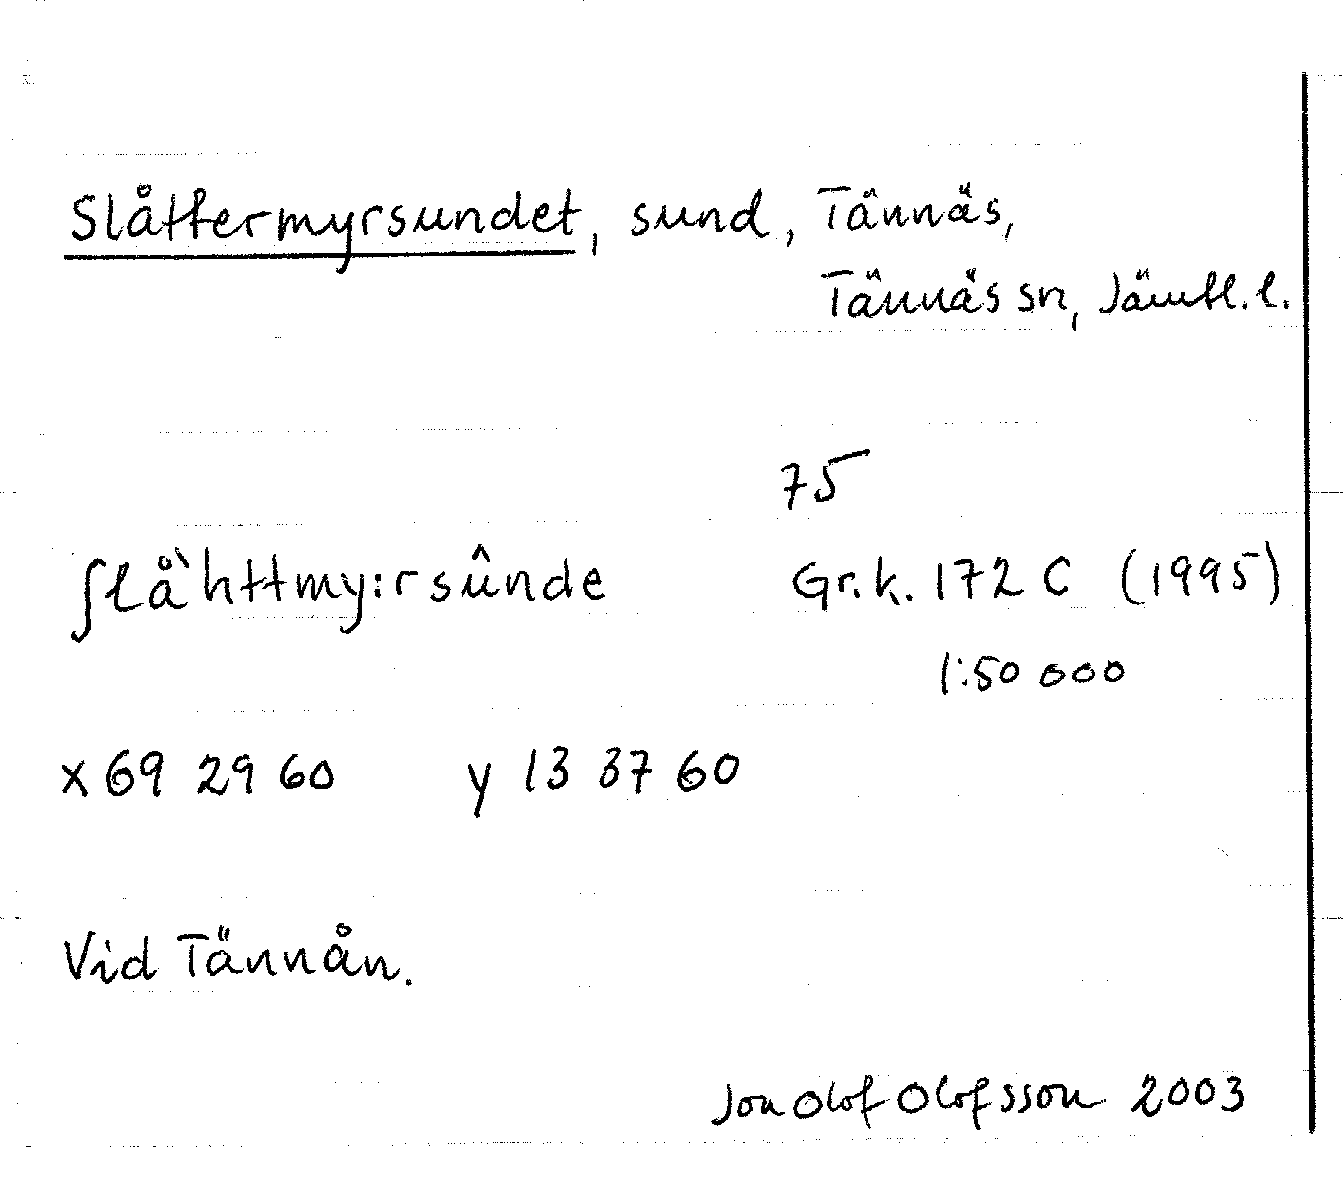 Slåttermyrsundet, sund, Tännäs,
Tännäs sn, Jämtl. l.
75
ʃlå`httmy:rsûnde Gr.k. 172 C (1995)
1:50 000
x 69 29 60 y 13 37 60
Vid Tännån.
Jon Olof Olofsson 2003